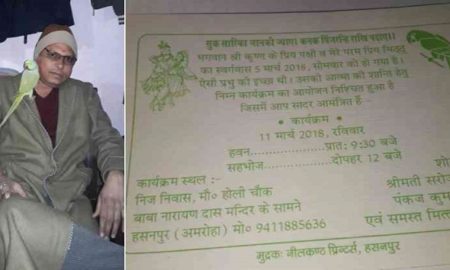 सुक सारिका जानकी ज्याए। कनक पिंजरन्हि राखि पढ़ाए।।
भगवान श्री कृष्ण के प्रिय पक्षी व मेरे परम प्रिय मिट्ठू
का स्वर्गवास 5 मार्च 2018, सोमवार को हो गया है।
ऐसी प्रभु की इच्छा थी। उसकी आत्मा की शान्ति हेतु
निम्न कार्यक्रम का आयोजन निश्चित हुआ है
जिसमें आप सादर आमंत्रित हैं
• कार्यक्रम •
11 मार्च 2018, रविवार
हवन............प्रातः 9:30 बजे
सहभोज............दोपहर 12 बजे
कार्यक्रम स्थल :-
निज निवास, मौ० होली चौक
बाबा नारायण दास मन्दिर के सामने
हसनपुर (अमरोहा) मो० 9411885636
शो
श्रीमती सरो
पंकज कुम
एवं समस्त मित्
मुद्रकः नीलकण्ठ प्रिन्टर्स, हसनपुर